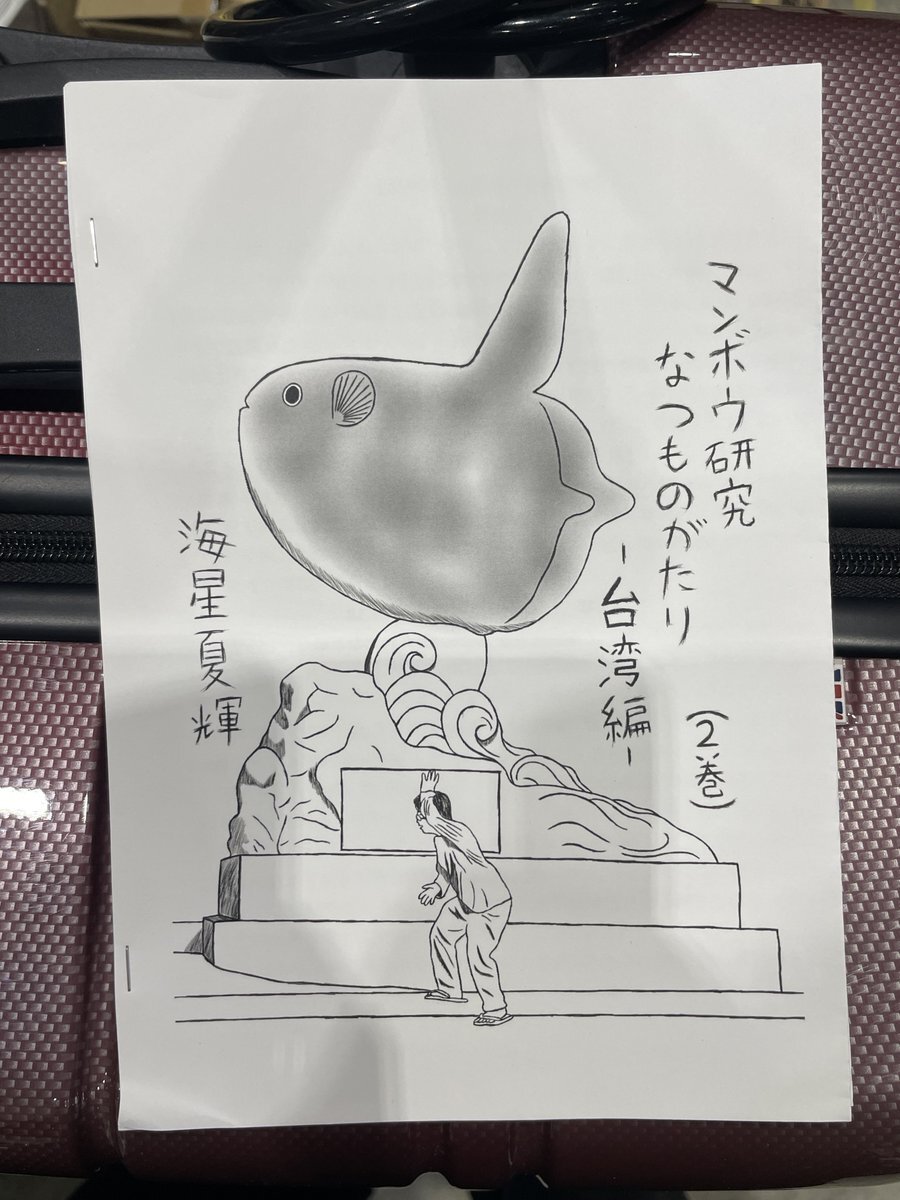 マンボウ研究
なつものがたり
-台湾編-
(2巻)
海星夏輝